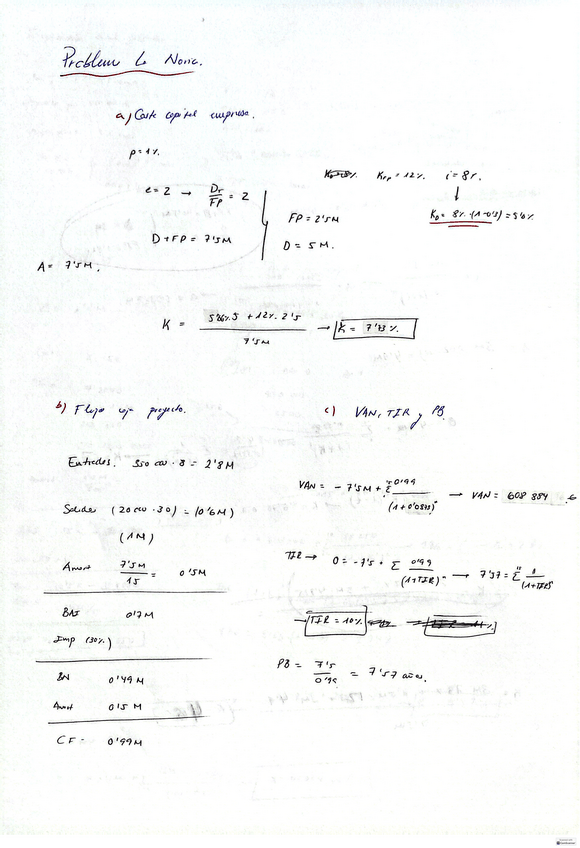 Problema La Noria.
a) Coste capital empresa.
p = 1%
e = 2 → Dr/FP = 2
D + FP = 7'5M
FP = 2'5M
D = 5M.
A = 7'5M.
Kfp = 12%
K = 5'6%·5 + 12%·2'5 / 7'5M → K = 7'73%.
b) Flujo caja proyecto.
Entradas. 350 000 · 8 = 2'8M
Salidas (20 000 · 30) = (0'6M)
(1M)
Amort 7'5M/15 = 0'5M
BAI 0'7M
Imp (30%)
BN 0'49M
Amort 0'5M
CF = 0'99M
c) VAN, TIR y PB.
VAN = - 7'5M + Σ 0'99
→ VAN = 608 884 €
TIR → 0 = -7'5 + Σ 0'99/(1+TIR)ⁿ
→ TIR = 10%
PB = 7'5/0'99 = 7'57 años.